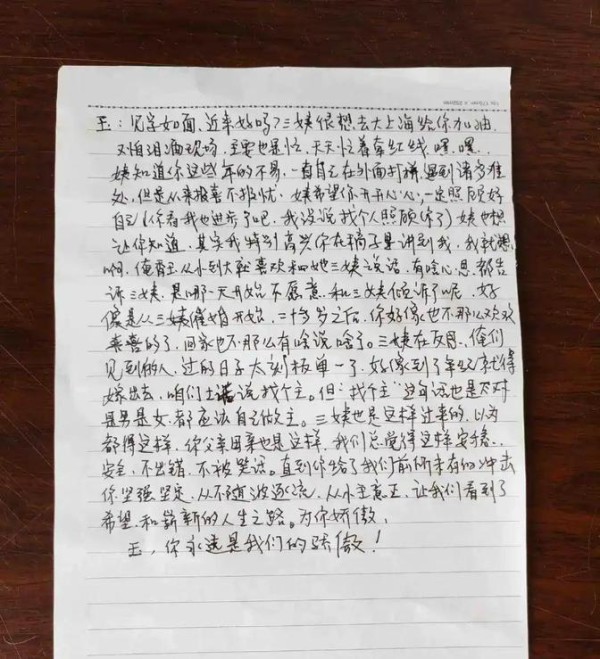 玉：见字如面、近来好吗？三姨很想去大上海给你加油
又怕泪洒现场，主要也是忙，天天忙着牵红线，嘿，嘿，
姨知道你这些年的不易，一直自己在外面打拼，遇到诸多难
处，但是从来报喜不报忧，姨希望你开开心心，一定照顾好
自己（你看我也进步了吧，我没说找个人照顾你了）姨也想
让你知道，其实我特别高兴你在稿子里讲到我，我就想
啊，俺玉从小到大就喜欢和她三姨说话，有啥心思，都告
诉三姨，是哪一天开始不愿意和三姨倾诉了呢，好
像是从三姨催婚开始，三十多岁之后，你好像也不那么欢欢
喜喜的了，回家也不那么有啥说啥了。三姨在反思，俺们
见到的人，过的日子太刻板单一了，好像到了年纪就得
嫁出去，咱们土话说找个主。但"找个主"这句话也是不对
是男是女，都应该自己做主。三姨也是这样过来的，以为
都得这样，你父亲母亲也是这样，我们总觉得这样安稳、
安全，不出错，不被笑话。直到你给了我们前所未有的冲击
你坚强坚定，从不随波逐流，从小主意正，让我们看到了
希望，和崭新的人生之路。为你骄傲，
玉，你永远是我们的骄傲！